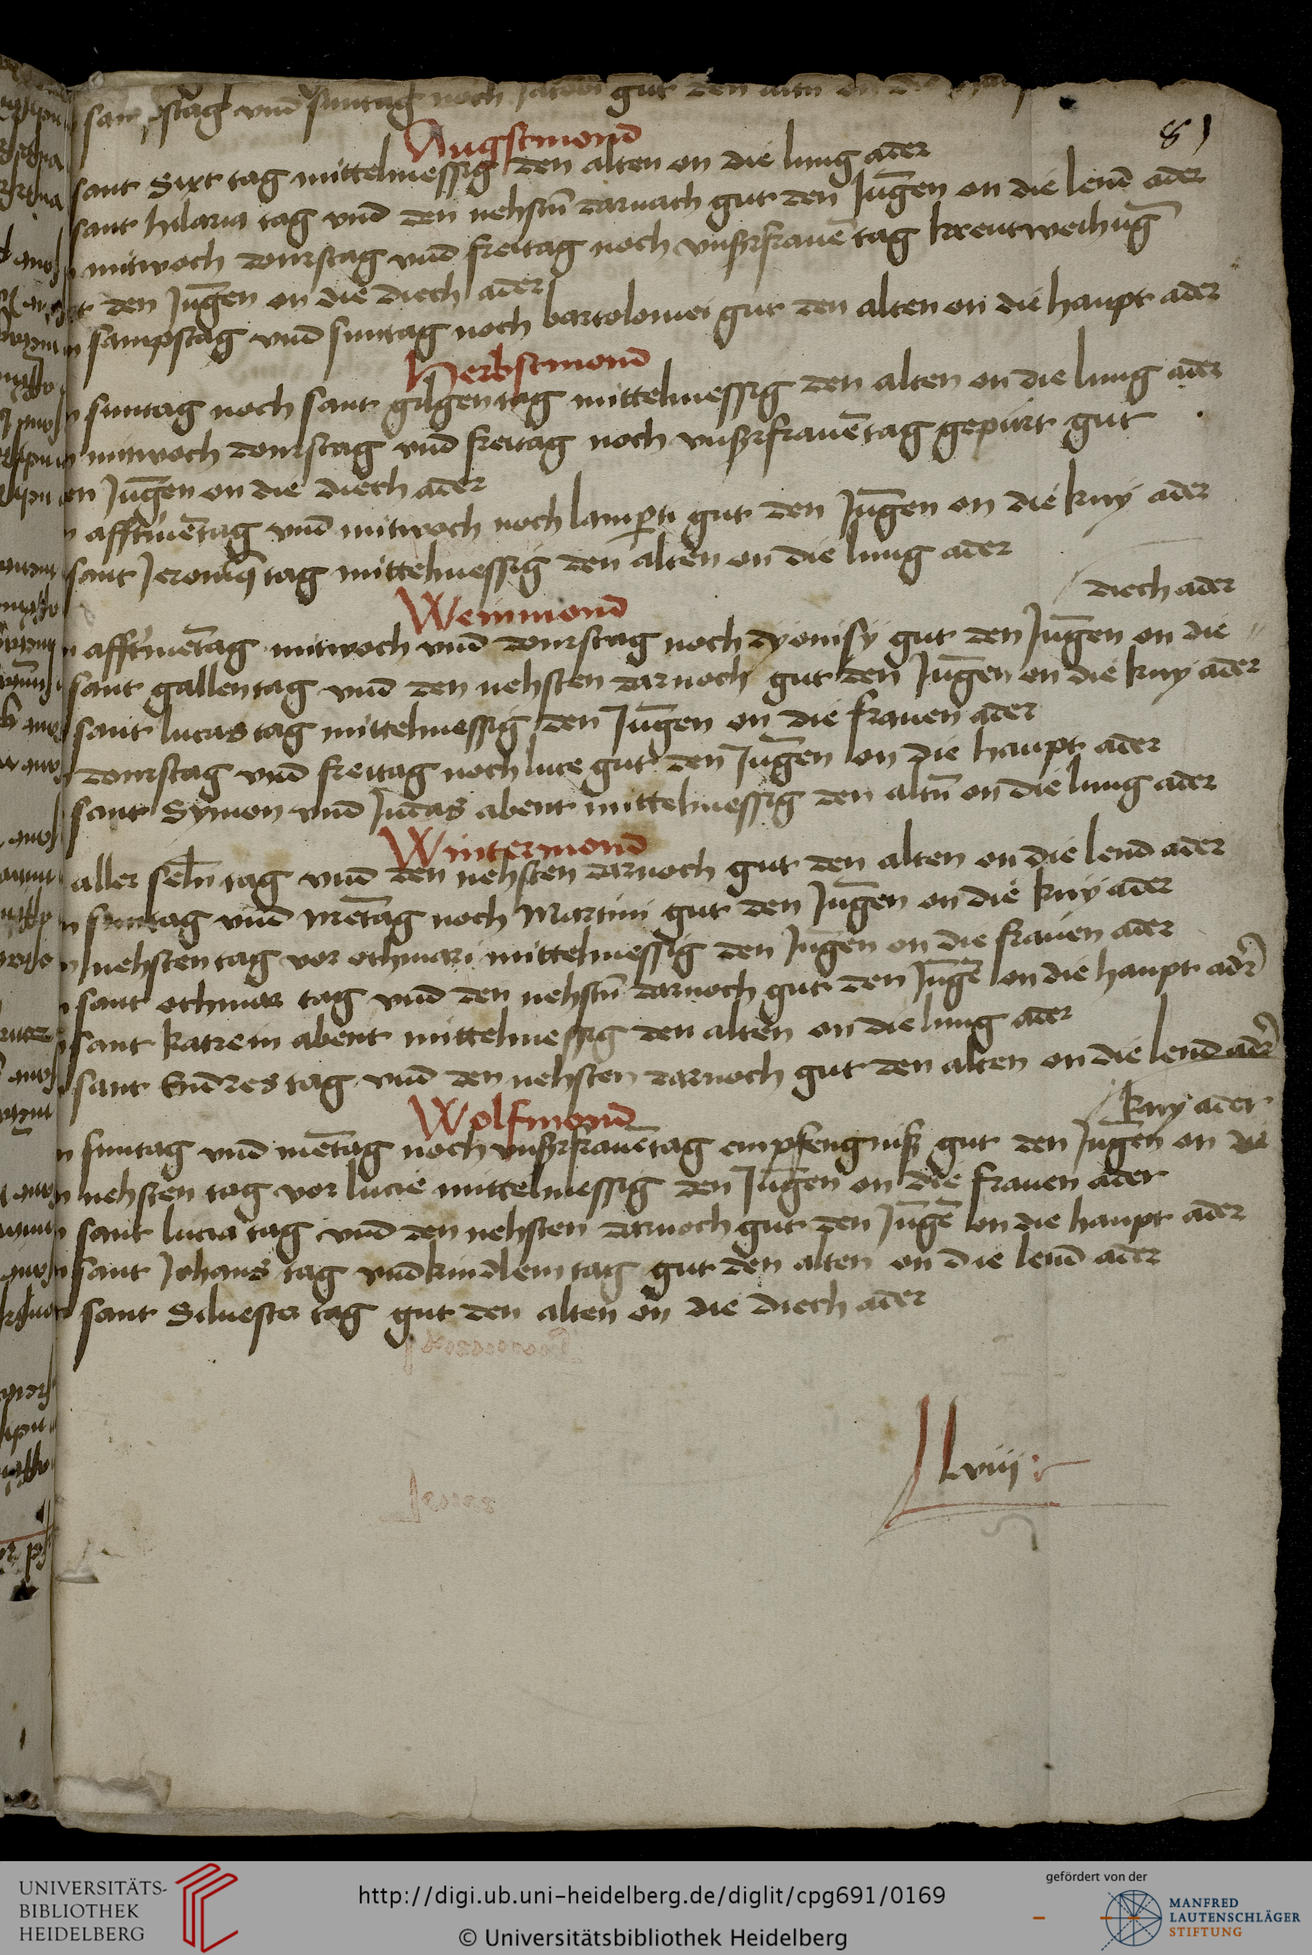 sampstag vnd suntag noch Jacobi gut den altn on die
81
Augstmond
sant Sixt tag mittelmessig den alten on die lung ader
sant hilaria tag vnd den nehstn̄ darnach gut den Jūgen on die lend ader
mitwoch donrstag vnd freitag noch vnßrfrauē tag krentweihūg
den Jūgen on die diech ader
sampstag vnd suntag noch bartolomei gut den alten on die haupt ader
Herbstmond
suntag noch sant gilgen tag mittelmessig den alten on die lung ader
mitwoch donrstag vnd freitag noch vnßrfrauē tag gepurt gut
en Jūgen on die diech ader
afftmētag vnd mitwoch noch lamperti gut den Jūgen on die kny ader
sant Jeronimꝰ tag mittelmessig den alten on die lung ader
Weinmond
diech ader
afftmētag mitwoch vnd donrstag noch dyonisy gut den Jūgen on die
sant gallen tag vnd den nehsten darnoch gut den Jūgen on die kny ader
sant lucas tag mittelmessig den Jūgen on die frauen ader
donrstag vnd freitag noch luce gut den Jūgen on die haupt ader
sant Symon vnd Judas abent mittelmessig den altn̄ on die lung ader
Wintermond
aller seln̄ tag vnd den nehsten darnoch gut den alten on die lend ader
suntag vnd mētag noch Martini gut den Jūgen on die kny ader
nehsten tag vor othmari mittelmessig den Jūgen on die frauen ader
sant othmar tag vnd den nehstn̄ darnoch gut den Jūgē on die haupt adr̄
sant katrein abent mittelmessig den alten on die lung ader
sant Endres tag vnd den nehsten darnoch gut den alten on die lend ader
Wolfmond
kny ader
suntag vnd mētag noch vnßrfrauē tag empfengniß gut den Jūgen on die
nehsten tag vor lucie mittelmessig den Jūgen on die frauen ader
sant lucia tag vnd den nehsten darnoch gut den Jūgē on die haupt ader
sant Johans tag vnd kindlein tag gut den alten on die lend ader
sant Siluester tag gut den alten on die diech ader
Lviij
UNIVERSITÄTS-
BIBLIOTHEK
HEIDELBERG
http://digi.ub.uni-heidelberg.de/diglit/cpg691/0169
© Universitätsbibliothek Heidelberg
gefördert von der
MANFRED
LAUTENSCHLÄGER
STIFTUNG